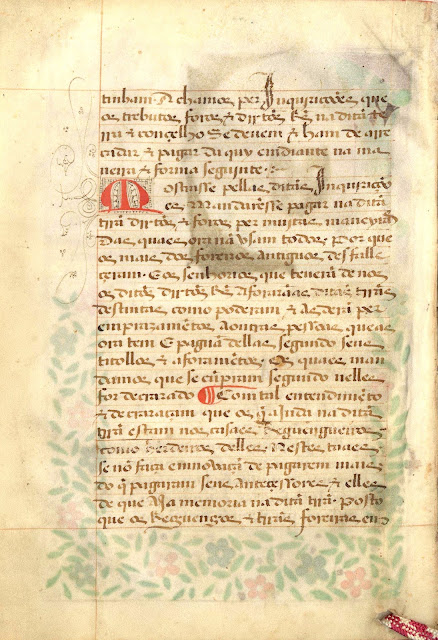 tinham · Achamos per Inquirições que
os trebutos foros & dirtos Rs na dita te
rra & concelho Se deuem & ham de arre
cadar & pagar da quy emdiante na ma
neira & forma seguinte
Mostrasse pellas ditas Inquiriçõ
es Mandarẽsse pagar na dita
trã dirtos & foros per muitas maneyras
Das quaes ora nã vsam todos Por que
os mais dos foreiros Antiguos desfalle
çeram E os senhorios que teuerã de nos
os ditos dirtos Rs Aforarã as ditas trãs
destintas como poderam & As derã per
emprazamẽtos A outras pessoas que as
ora tem E paguã dellas segundo seus
titollos & aforamẽtos Os quaes man
damos que se cũpram segundo nelles
for decrarado Com tal entendimẽto
& decraraçam que os q̃ Ainda na dita
trã estam nos casaes Reguengueiros
como herdeiros delles Nestes taaes
se nõ faça emnouaçã de pagarem mais
do q̃ pagaram seus Antessores & elles
de que A ja memoria na dita trã Posto
que os Reguengos & trãs foreiras em